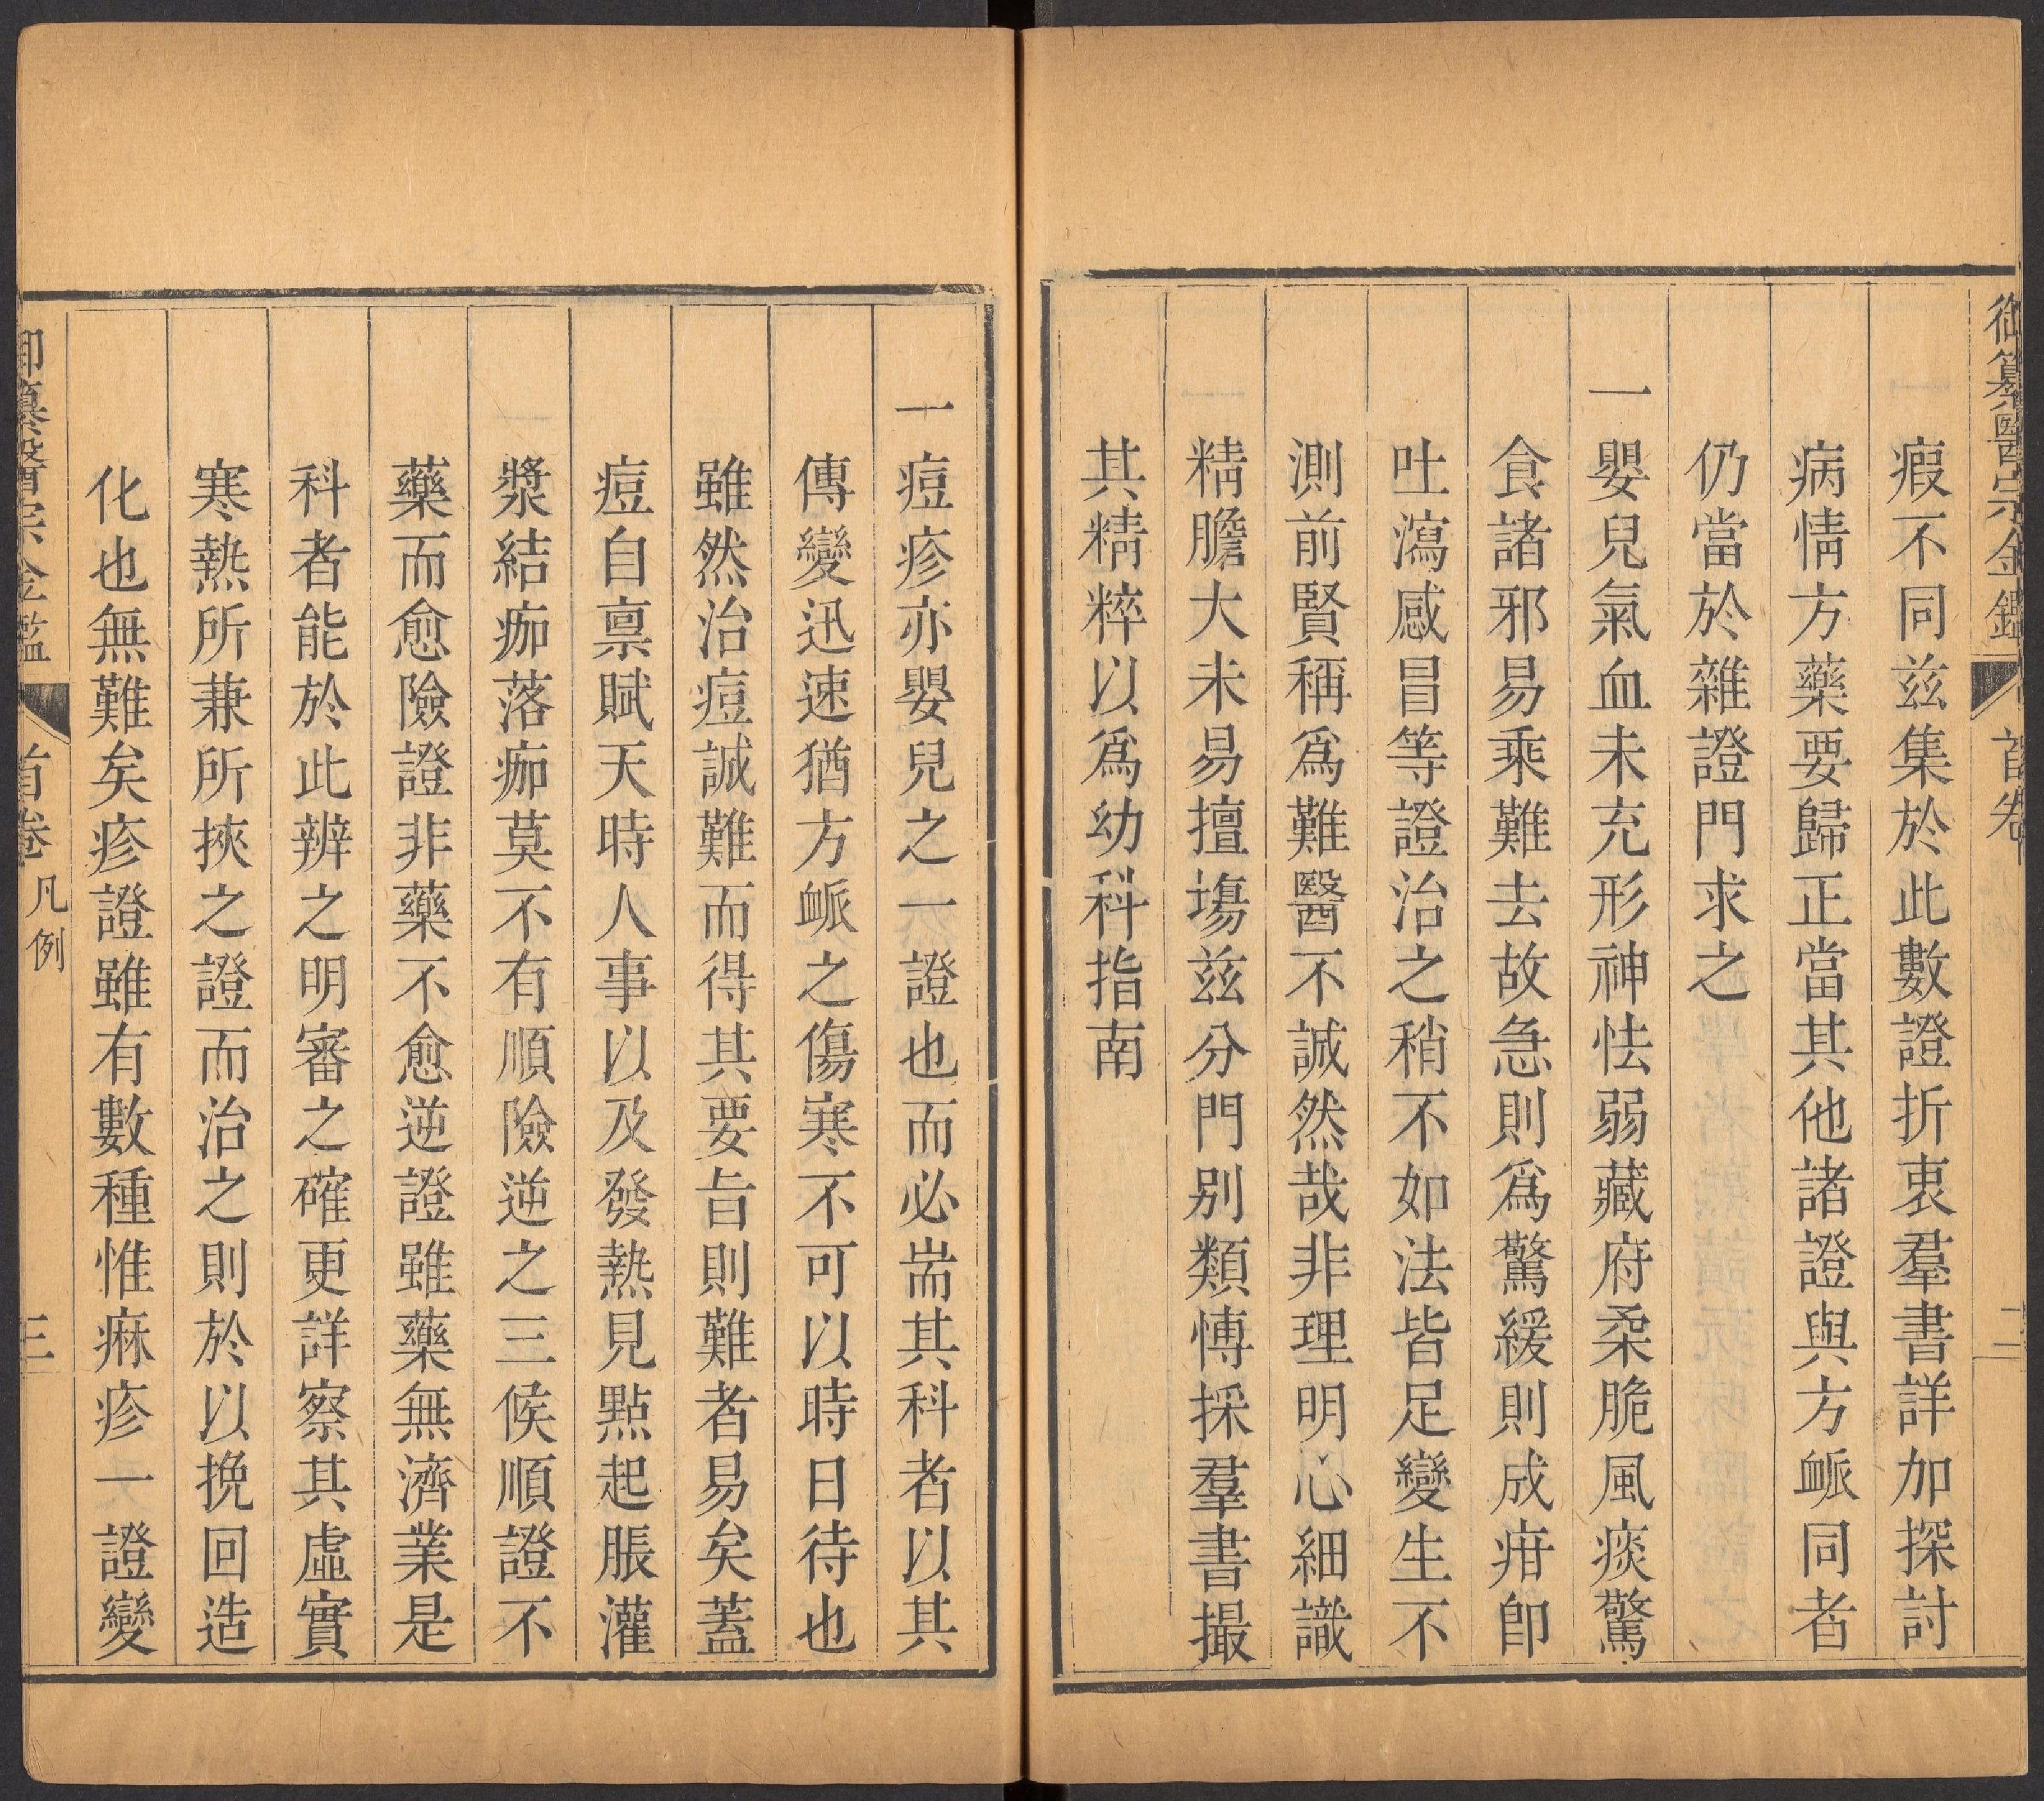 御纂醫宗金鑑
首卷
二
瘕不同兹集於此數證折衷羣書詳加探討
病情方藥要歸正當其他諸證與方䘑同者
仍當於雜證門求之
一嬰兒氣血未充形神怯弱藏府柔脆風痰驚
食諸邪易乘難去故急則爲驚緩則成疳卽
吐瀉感冒等證治之稍不如法皆足變生不
測前賢稱爲難醫不誠然哉非理明心細識
精膽大未易擅塲兹分門別類博採羣書撮
其精粹以爲幼科指南
一痘疹亦嬰兒之一證也而必耑其科者以其
傳變迅速猶方䘑之傷寒不可以時日待也
雖然治痘誠難而得其要旨則難者易矣蓋
痘自禀賦天時人事以及發熱見點起脹灌
漿結痂落痂莫不有順險逆之三候順證不
藥而愈險證非藥不愈逆證雖藥無濟業是
科者能於此辨之明審之確更詳察其虛實
寒熱所兼所挾之證而治之則於以挽回造
化也無難矣疹證雖有數種惟痳疹一證變
御纂醫宗金鑑
首卷
凡例
三